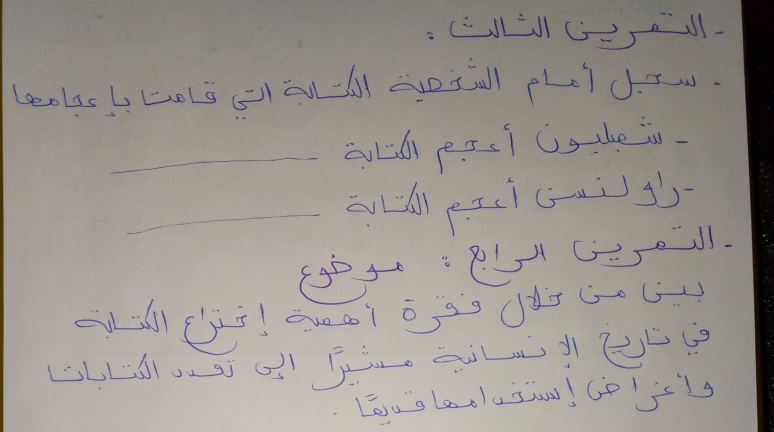 - التمرين الثالث :
- سجل أمام الشخصية الكتابة التي قامت بإعجامها
- شمبليون أعجم الكتابة ــــــــــــ
- راولنسن أعجم الكتابة ــــــــــــ
- التمرين الرابع : موضوع
بين من خلال فقرة أهمية إختراع الكتابة
في تاريخ الإنسانية مشيرًا إلى تعدد الكتابات
وأغراض إستخدامها قديمًا .